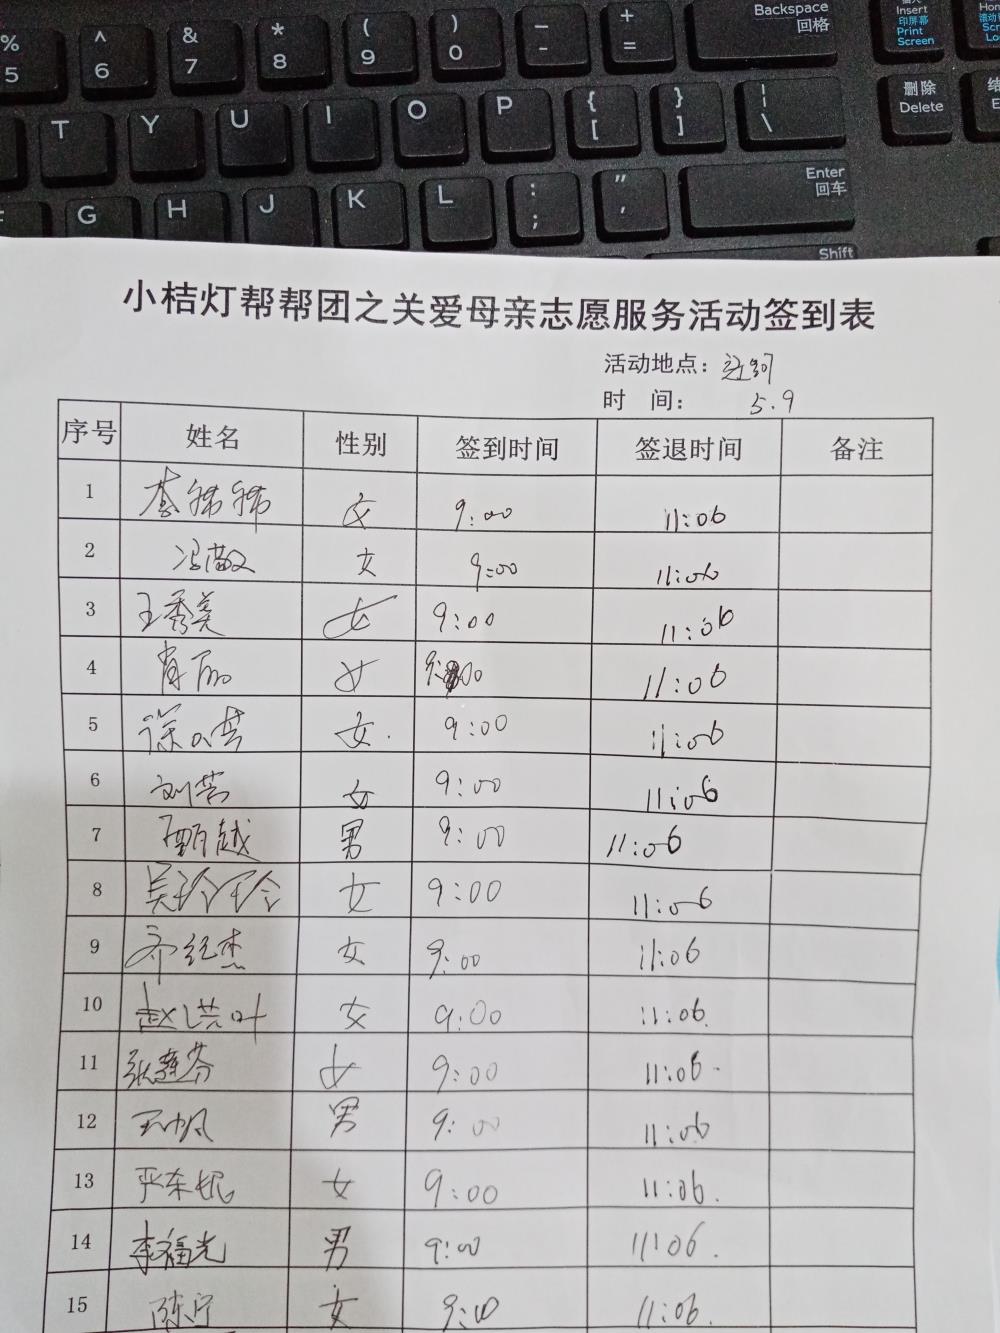 % 5 ^ 6 & 7 * 8 ( 9 ) 0 _ - + = Backspace 回格 Insert 印屏幕 Print Screen
T Y U I O P { [ } ] | \ 删除 Delete
G H J K L : ; " ' Enter 回车
Shift
小桔灯帮帮团之关爱母亲志愿服务活动签到表
活动地点：
时 间： 5.9
序号 姓名 性别 签到时间 签退时间 备注
1 女 9:00 11:06
2 女 9:00 11:06
3 王秀英 女 9:00 11:06
4 肖丽 女 9:00 11:06
5 女 9:00 11:06
6 刘芸 女 9:00 11:06
7 男 9:00 11:06
8 吴玲玲 女 9:00 11:06
9 乔纪杰 女 9:00 11:06
10 赵洪叶 女 9:00 11:06
11 张莲芬 女 9:00 11:06
12 王帆 男 9:00 11:06
13 严东妮 女 9:00 11:06
14 李福光 男 9:00 11:06
15 陈宁 女 9:00 11:06